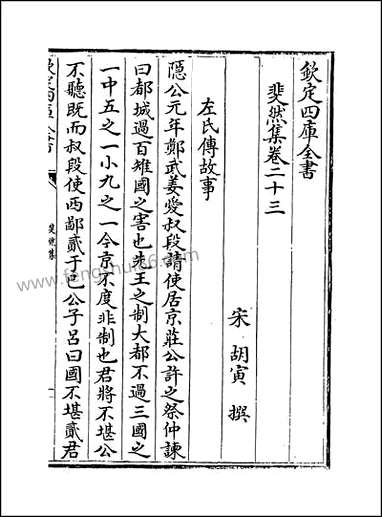 欽定四庫全書
斐然集卷二十三
宋 胡寅 撰
左氏傳故事
隱公元年鄭武姜愛叔段請使居京莊公許之祭仲諫
曰都城過百雉國之害也先王之制大都不過三國之
一中五之一小九之一今京不度非制也君將不堪公
不聽既而叔段使西鄙貳于已公子呂曰國不堪貳君
欽定四庫全書
斐然集
www.fengshui86.com